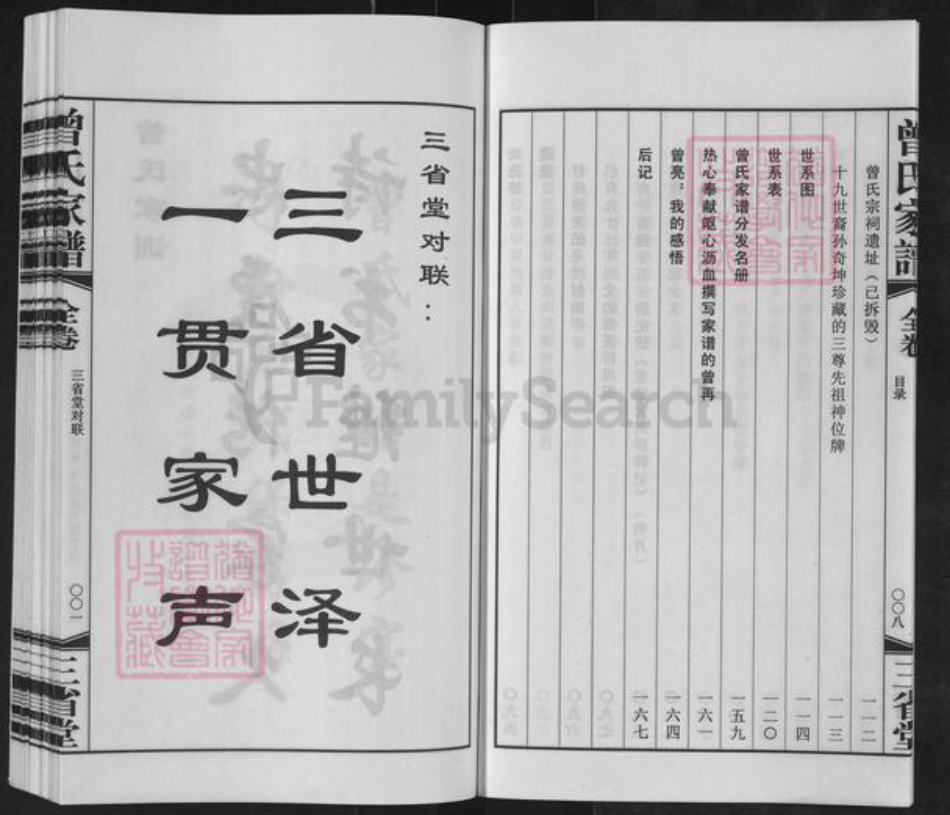 曾氏家譜
全卷
目录
〇〇八
三省堂
曾氏宗祠遗址（已拆毁）
一一二
十九世裔孙奇坤珍藏的三尊先祖神位牌
一一三
世系图
一一四
世系表
一二〇
曾氏家谱分发名册
一五九
热心奉献呕心沥血撰写家谱的曾再
一六一
曾亮：我的感悟
一六四
后记
一六七
三省堂对联：
三省世泽
一贯家声
曾氏家譜
全卷
三省堂对联
〇〇一
三省堂
FamilySearch